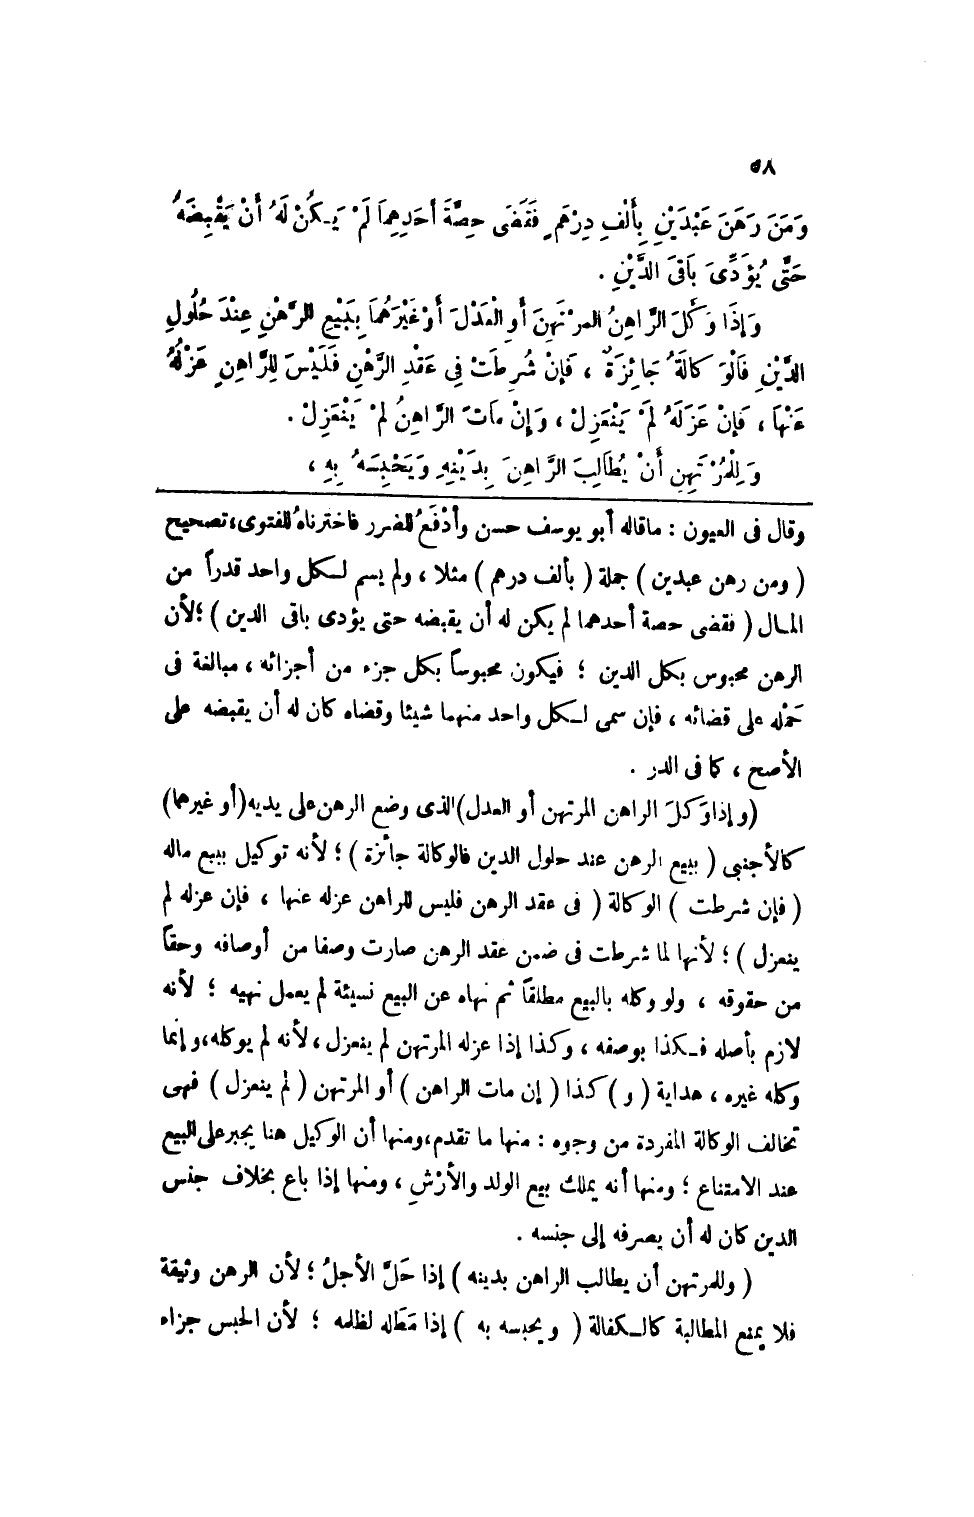 ٥٨
وَمَنَ رَهَنَ عَبْدَيْنِ بِأَلْفِ دِرْهَمٍ فَقَضَى حِصَّةَ أَحَدِهِمَا لَمْ يَكُنْ لَهُ أَنْ يَقْبِضَهُ
حَتَّى يُؤَدِّىَ بَاقِىَ الدَّيْنِ .
وَإِذَا وَكَّلَ الرَّاهِنُ المرْتَهِنَ أَوِ الْعَدْلَ أَوْ غَيْرَهُمَا بِبَيْعِ الرَّهْنِ عِنْدَ حُلُولِ
الدَّيْنِ فَالْوَكالَةُ جَائِزَةٌ ، فَإِنْ شُرِطَتْ فِى عَقْدِ الرَّهْنِ فَلَيْسَ لِلرَّاهِنِ عَزْلُهُ
عَنْهَا ، فَإِنْ عَزَلَهُ لَمْ يَنْعَزِلْ ، وَإِنْ مَاتَ الرَّاهِنُ لمْ يَنْعَزِلْ .
وَلِلْمُرْتَهِنِ أَنْ يُطَالِبَ الرَّاهِنَ بِدَيْنِهِ وَيَحْبِسَهُ بِهِ ،
وقال فى العيون : ماقاله أبو يوسف حسن وأدْفَعُ للضرر فاخترناه للفتوى، تصحيح
( ومن رهن عبدين ) جملة ( بألف درهم ) مثلا ، ولم يسم لكل واحد قدراً من
المال ( فقضى حصة أحدهما لم يكن له أن يقبضه حتى يؤدى باقى الدين ) ؛ لأن
الرهن محبوس بكل الدين ؛ فيكون محبوساً بكل جزء من أجزائه ، مبالغة فى
حَمْله على قضائه ، فإن سمى لكل واحد منهما شيئا وقضاه كان له أن يقبضه على
الأصح ، كما فى الدر .
( وإذا وَكلَ الراهن المرتهن أو العدل ) الذى وضع الرهن على يديه ( أو غيرهما )
كالأجنبى ( ببيع الرهن عند حلول الدين فالوكالة جائزة ) ؛ لأنه توكيل ببيع ماله
( فإن شرطت ) الوكالة ( فى عقد الرهن فليس للراهن عزله عنها ، فإن عزله لم
ينعزل ) ؛ لأنها لما شرطت فى ضمن عقد الرهن صارت وصفا من أوصافه وحقاً
من حقوقه ، ولو وكله بالبيع مطلقاً ثم نهاه عن البيع نسيئة لم يعمل نهيه ؛ لأنه
لازم بأصله فكذا بوصفه ، وكذا إذا عزله المرتهن لم ينعزل ، لأنه لم يوكله، وإنما
وكله غيره ، هداية ( و ) كذا ( إن مات الراهن ) أو المرتهن ( لم ينعزل ) فهى
تخالف الوكالة المفردة من وجوه : منها ما تقدم، ومنها أن الوكيل هنا يجبر على البيع
عند الامتناع ؛ ومنها أنه يملك بيع الولد والأرْشِ ، ومنها إذا باع بخلاف جنس
الدين كان له أن يصرفه إلى جنسه .
( وللمرتهن أن يطالب الراهن بدينه ) إذا حَلَّ الأجلُ ؛ لأن الرهن وثيقة
فلا يمنع المطالبة كالكفالة ( ويحبسه به ) إذا مَطَاله لظلمه ؛ لأن الحبس جزاء